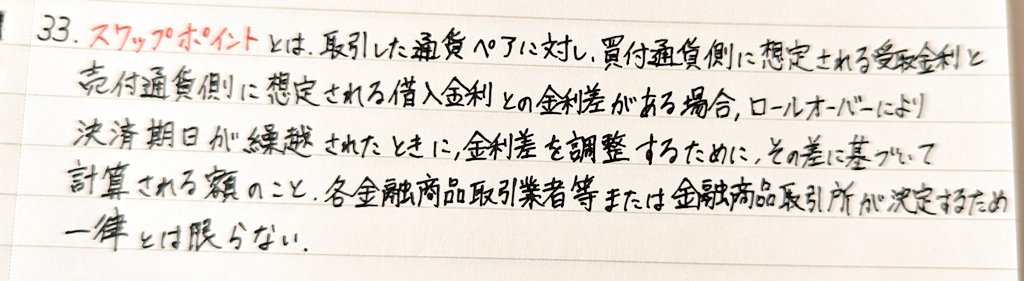 33. スワップポイントとは、取引した通貨ペアに対し、買付通貨側に想定される受取金利と
売付通貨側に想定される借入金利との金利差がある場合, ロールオーバーにより
決済期日が繰越されたときに, 金利差を調整するために, その差に基づいて
計算される額のこと. 各金融商品取引業者等または金融商品取引所が決定するため
一律とは限らない.